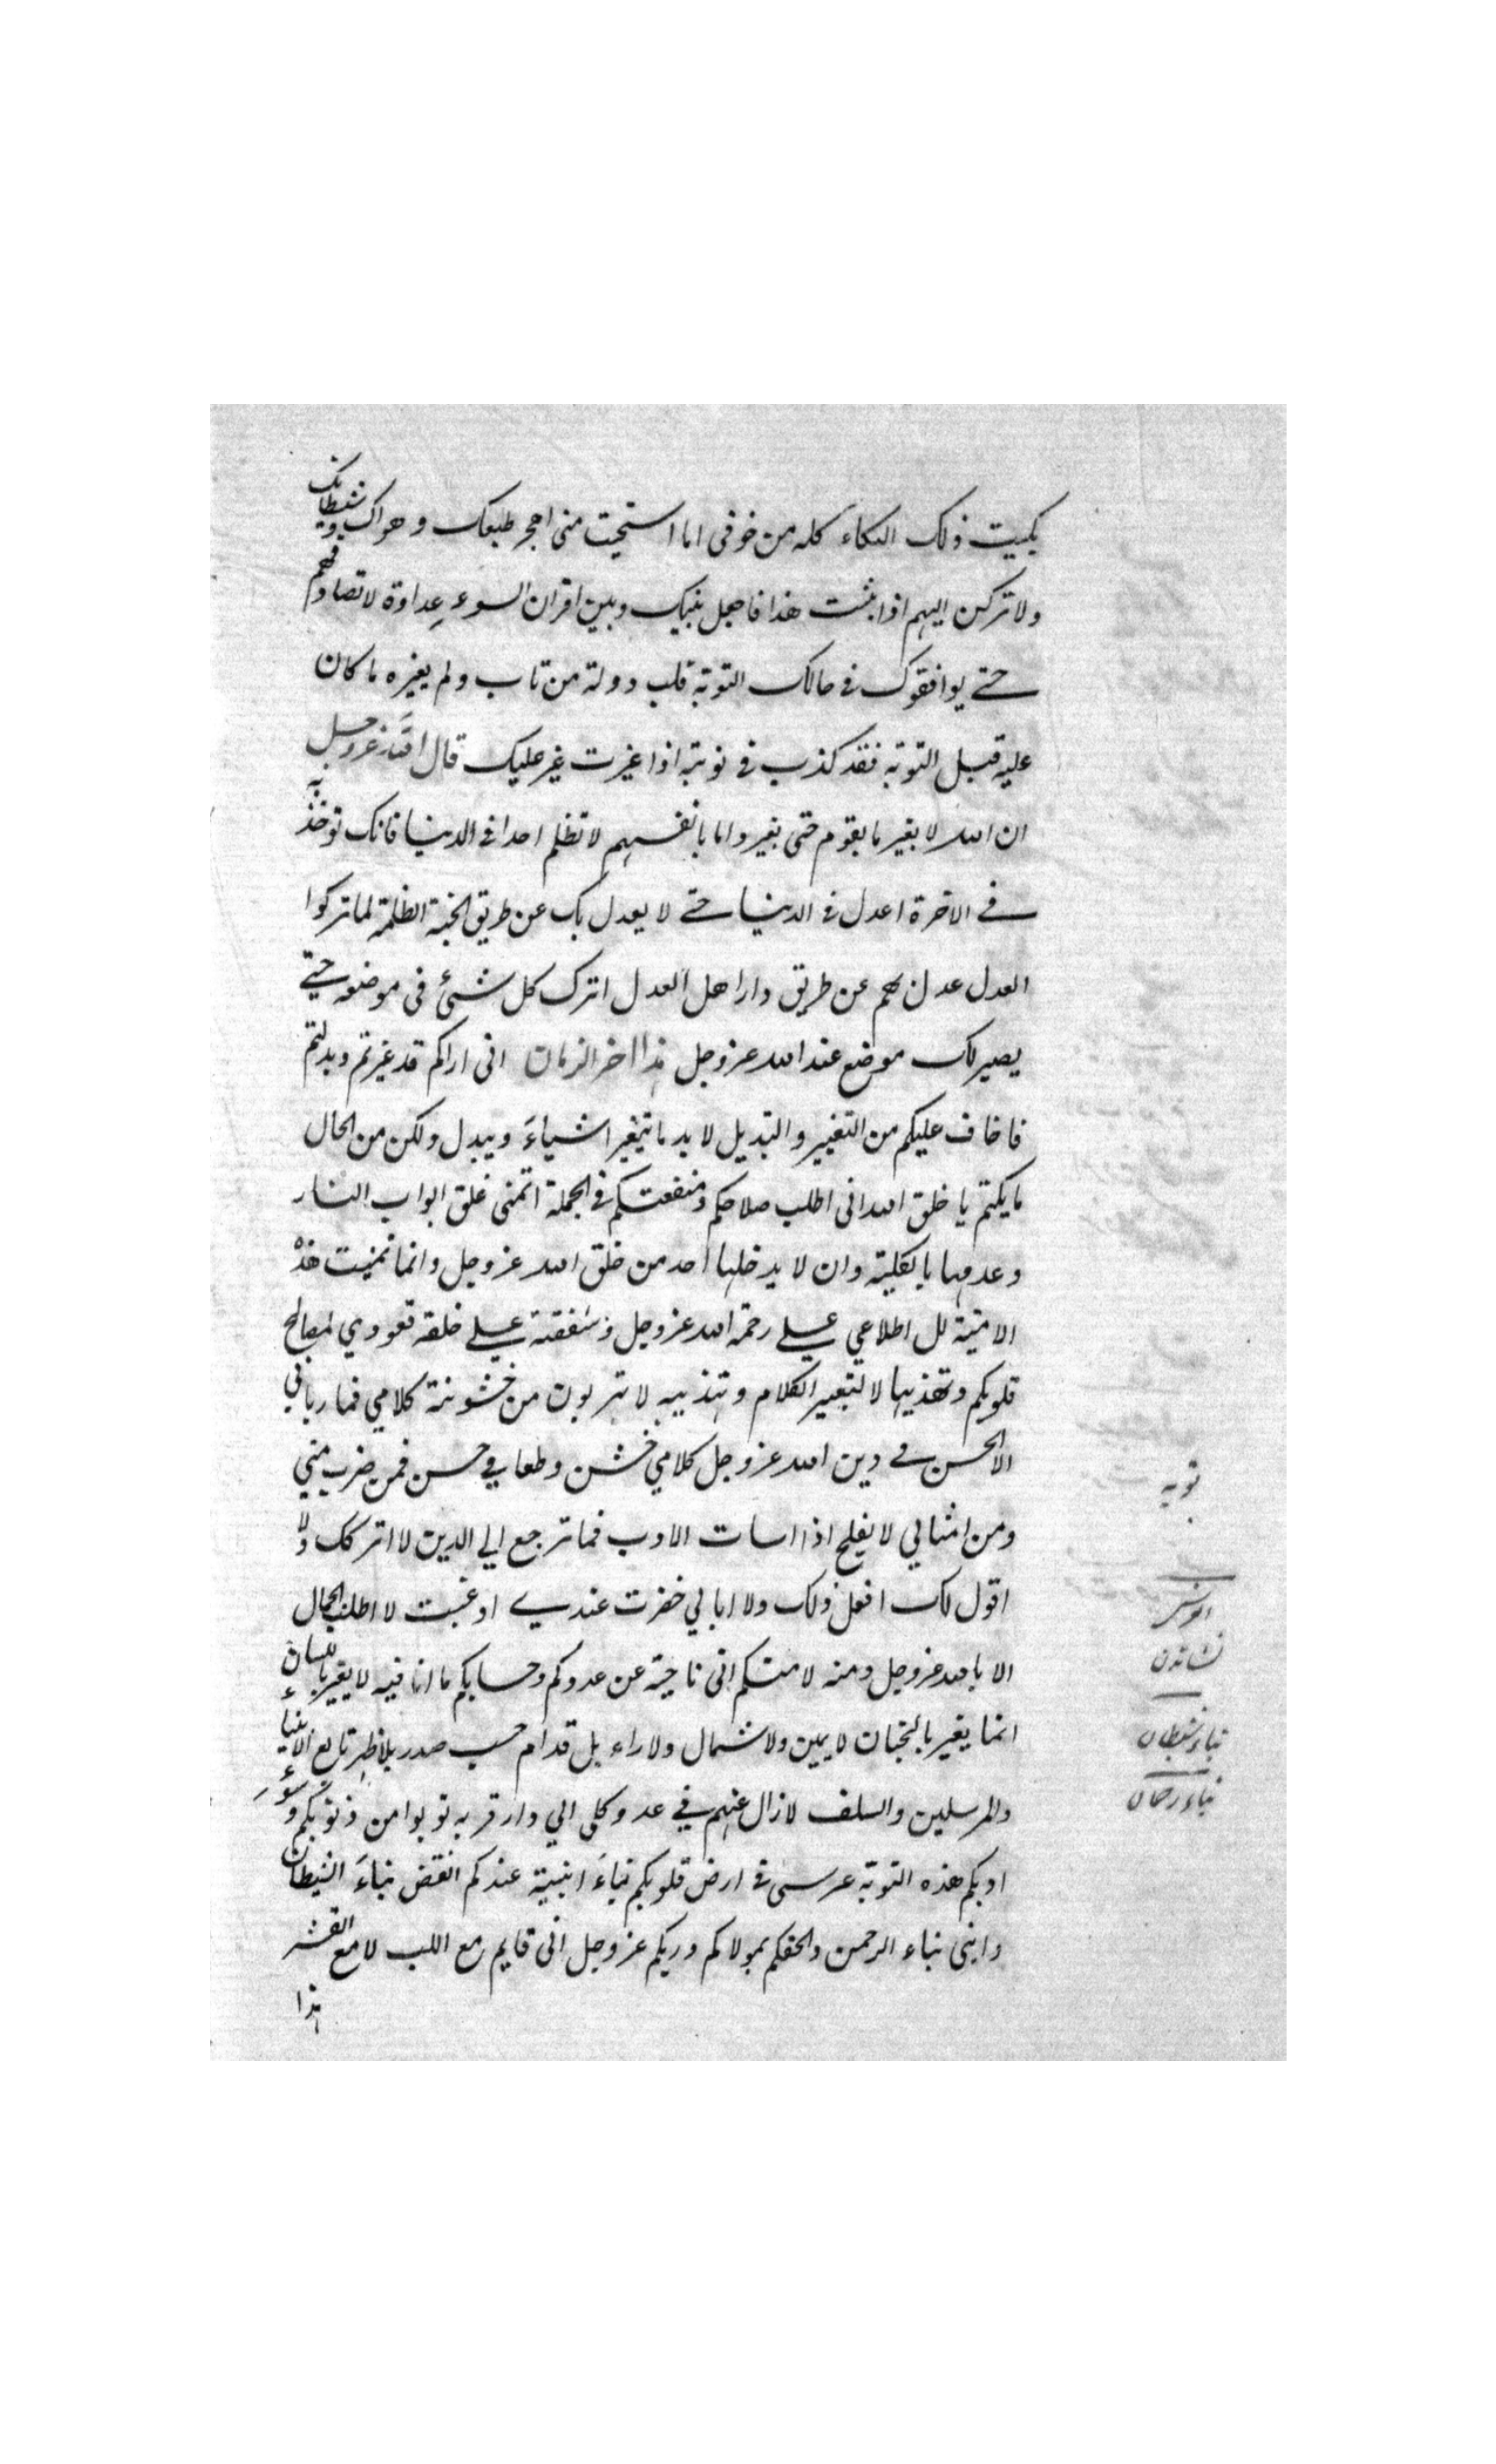 بكيت ذلك البكاء كله من خوفى اما استحيت منى اهجر طبعك وهواك وشيطانك
ولا تركن اليهم اذا ثبت هذا فاجعل بينك وبين اقران السوء عداوة لا تصادقهم
حتى يوافقوك فى حالك التوبة قلب دولة من تاب ولم يغيره ما كان
عليه قبل التوبة فقد كذب فى توبته اذا غيرت غير عليك قال الله عز وجل
ان الله لا يغير ما بقوم حتى يغيروا ما بانفسهم لا تظلم احدا فى الدنيا فانك توخذ به
فى الاخرة اعدل فى الدنيا حتى لا يعدل بك عن طريق الجنة الظلمة لما تركوا
العدل عدل بهم عن طريق دار اهل العدل اترك كل شئ فى موضعه حتى
يصير لك موضع عند الله عز وجل هذا اخر الزمان انى اراكم قد غيرتم وبدلتم
فاخاف عليكم من التغيير والتبديل لا بد ما يتغير اشياء ويبدل ولكن من الحال
ما يكتم يا خلق الله انى اطلب صلاحكم ومنفعتكم فى الجملة اتمنى غلق ابواب النار
وعدمها بالكلية وان لا يدخلها احد من خلق الله عز وجل وانما تمنيت هذه
الامنية لل اطلاعي على رحمة الله عز وجل وشفقته على خلقه قعودي لمصالح
قلوبكم وتهذيبها لا لتغيير الكلام وتهذيبه لا تهربون من خشونة كلامي فما رباني
الا الخشن فى دين الله عز وجل كلامي خشن وطعامي خشن فمن هرب مني
ومن امثالي لا يفلح اذا اسات الادب فما ترجع الي الدين لا اتركك ولا
اقول لك افعل ذلك ولا ابالي حضرت عندي او غبت لا اطلب الحال
الا بالله عز وجل ومنه لا منكم انى ناحية عن عددكم وحسابكم ما انا فيه لا يغير باللسان
انما يغير بالجنان لا يمين ولا شمال ولا وراء بل قدام حسب صدر بلا ظهر تابع الانبياء
والمرسلين والسلف لا زال عنهم في عدو كلى الي دار قربه توبوا من ذنوبكم وسوء
ادبكم هذه التوبة غرسى فى ارض قلوبكم بناء ابنيه عندكم انقض بناء الشيطان
وابنى بناء الرحمن والحقكم بمولاكم وربكم عز وجل انى قايم مع اللب لا مع القشر
هذا
توبه
بناء شيطان
بناء رحمان